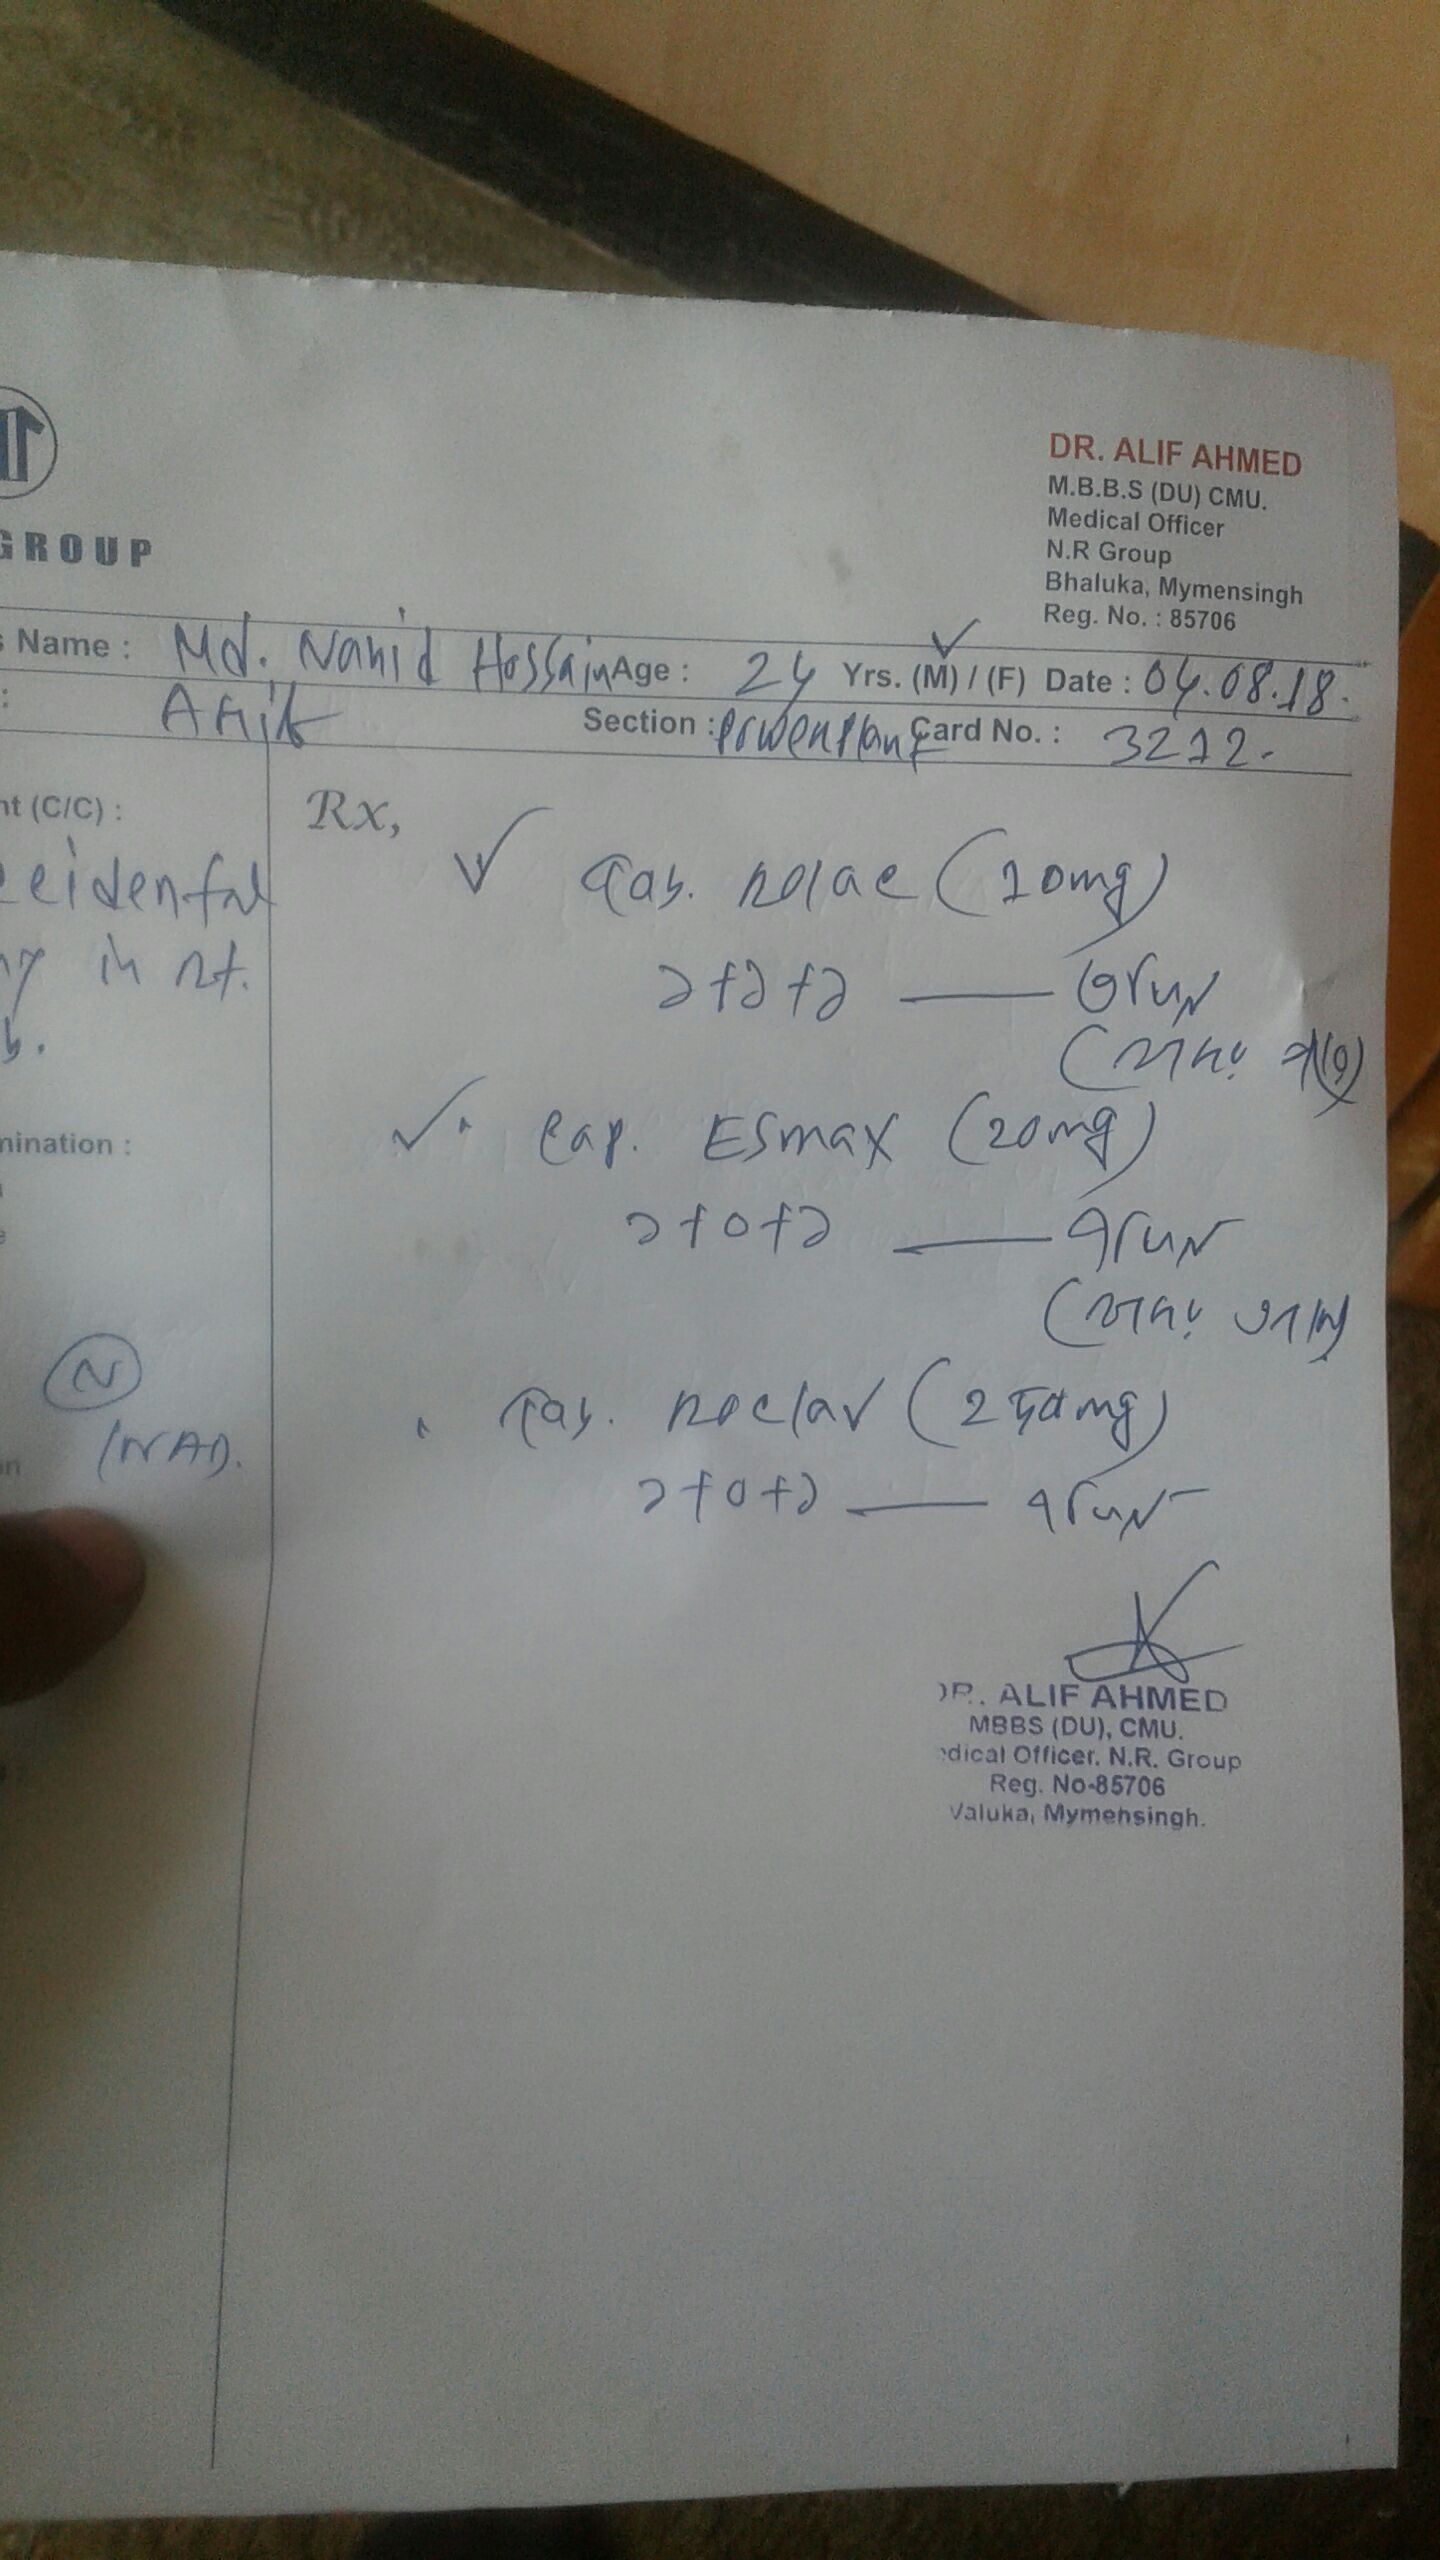 GROUP
DR. ALIF AHMED
M.B.B.S (DU) CMU.
Medical Officer
N.R Group
Bhaluka, Mymensingh
Reg. No. : 85706
Name : Md. Nahid Hossain Age : 24 Yrs. (M) / (F) Date : 04.08.18.
Section : Powerplant Card No. : 3212.
(C/C) :
in rt.
Rx,
Tab. Rolac (10mg)
১+১+১ — ৩দিন
(খাবার পরে)
mination :
Cap. Esmax (20mg)
১+০+১ — ৭দিন
(খাবার আগে)
N
Tab. Roclav (250mg)
১+০+১ — ৭দিন
DR. ALIF AHMED
MBBS (DU), CMU.
dical Officer. N.R. Group
Reg. No-85706
Valuka, Mymensingh.